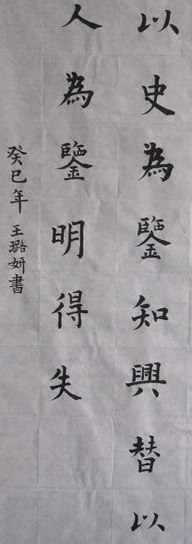 以史為鑒知興替以
人為鑒明得失
癸巳年王璐妍書